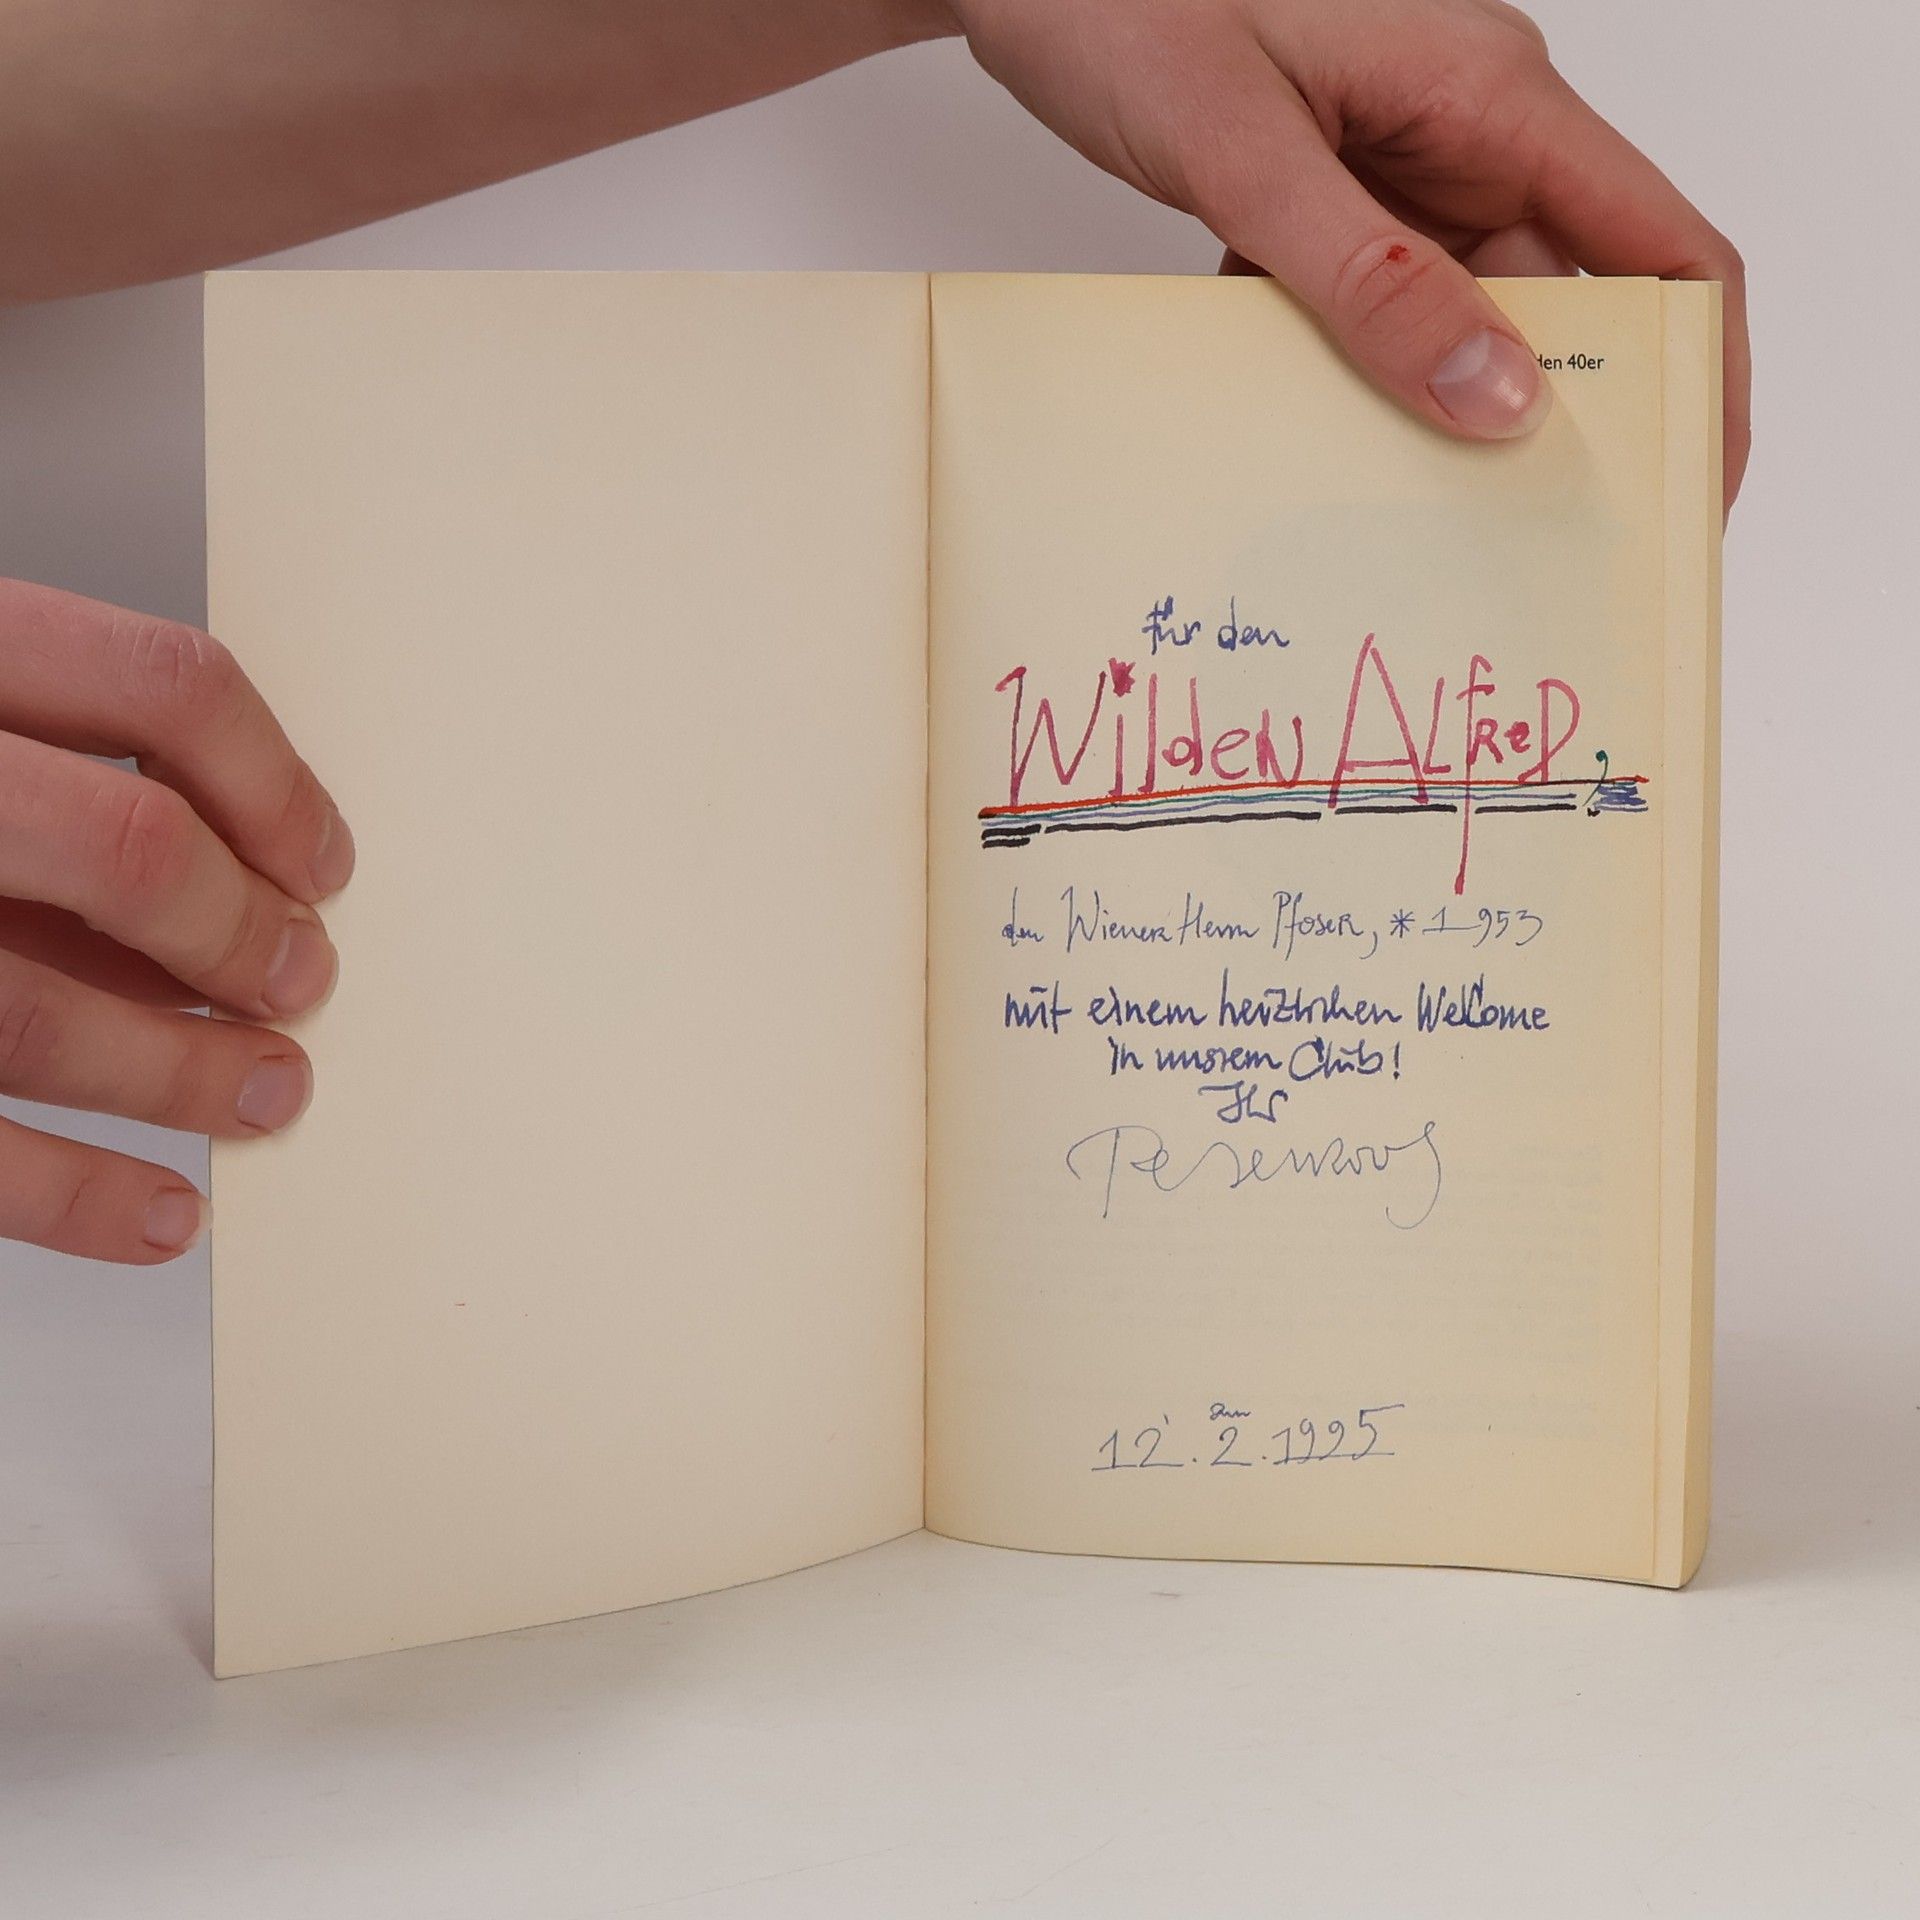 den 40er
für den
Wilden Alfred,
den Wiener Herrn Pfoser, * 1953
mit einem herzlichen Welcome
in unsrem Club!
Ihr
am
12.2.1995